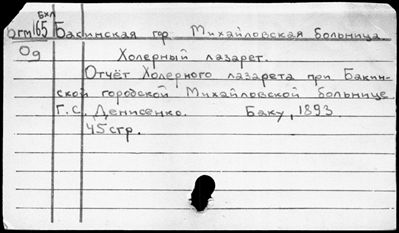 БХЛ
Огм 165 Бакинская гор. Михайловская больница
Од Холерный лазарет.
Отчёт Холерного лазарета при Бакин-
ской городской Михайловской больнице
Г.С. Денисенко. Баку, 1893.
45стр.